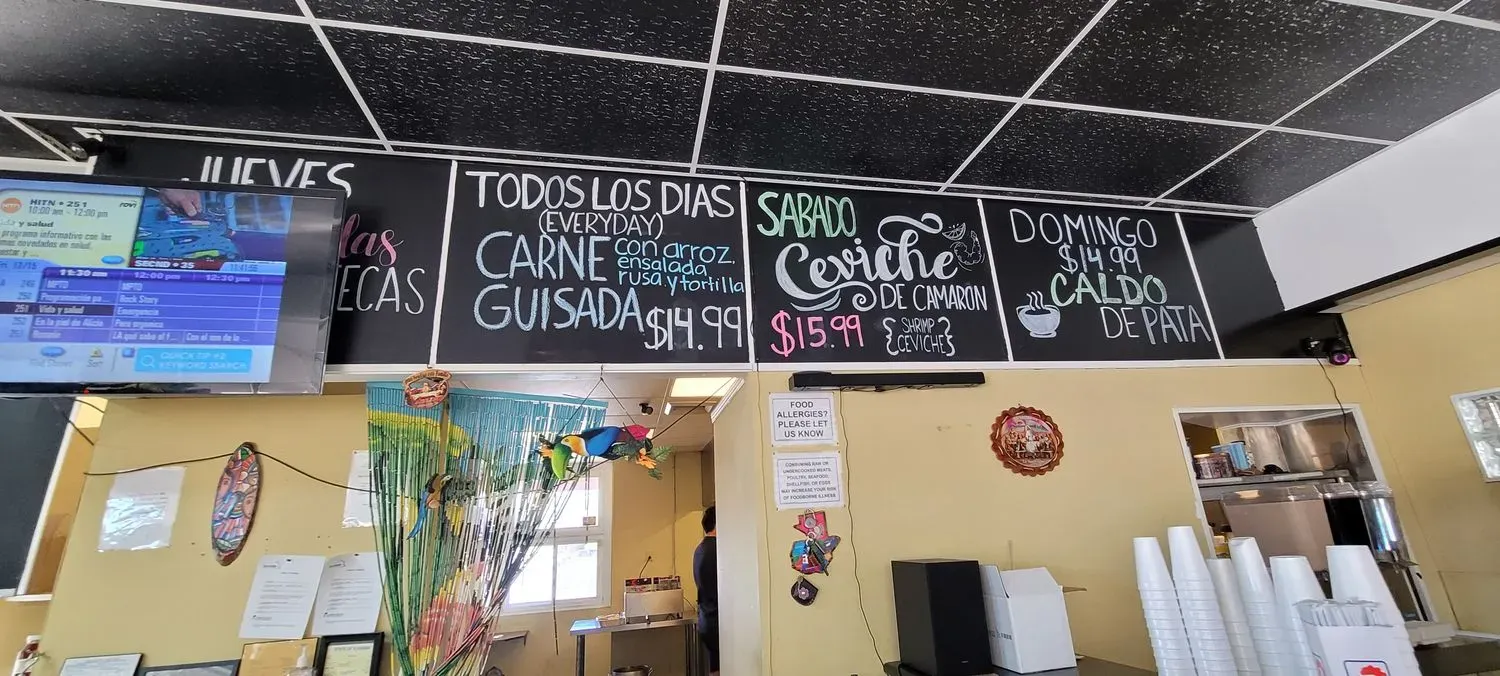 JUEVES
las
ECAS
TODOS LOS DIAS
(EVERYDAY)
CARNE
GUISADA
con arroz,
ensalada
rusa y tortilla
$14.99
SABADO
Ceviche
DE CAMARÓN
$15.99
{SHRIMP
CEVICHE}
DOMINGO
$14.99
CALDO
DE PATA
HITN • 251
10:00 am - 12:00 pm
rovi
y salud
programa informativo con las
mas novedades en salud,
SECND • 25
11:30 am
12:00 pm
12:30 pm
MPTD
MPTD
Programación pa...
Back Story
251
Vida y salud
Emergencia
En la piel de Alicia
Pura orgánica
QUICK TIP #2
KEYWORD SEARCH
FOOD
ALLERGIES?
PLEASE LET
US KNOW
CONSUMING RAW OR
UNDERCOOKED MEATS,
POULTRY, SEAFOOD,
SHELLFISH, OR EGGS
MAY INCREASE YOUR RISK
OF FOODBORNE ILLNESS